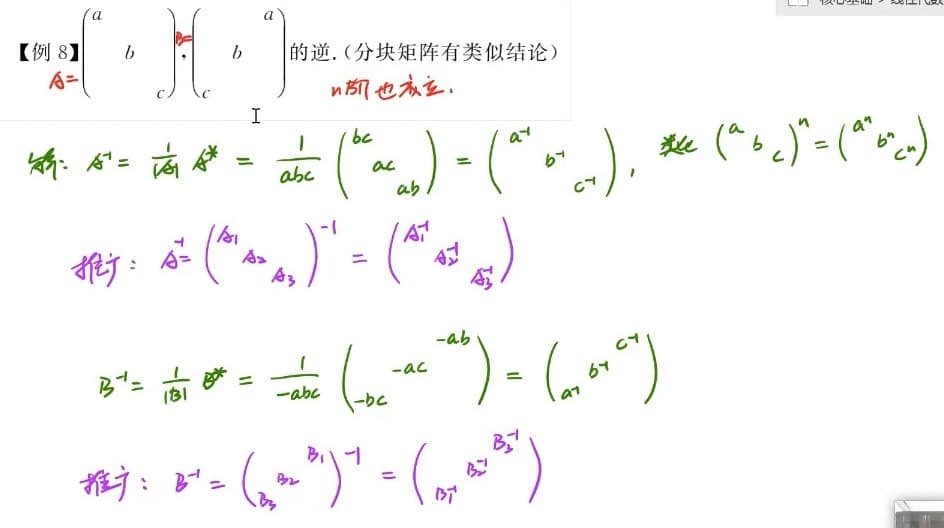 核心基础 > 线性代数
【例 8】 A= (a b c) , B= (a b c) 的逆.(分块矩阵有类似结论)
n阶也成立.
解: A⁻¹ = 1/|A| A* = 1/abc (bc ac ab) = (a⁻¹ b⁻¹ c⁻¹), (a b c)ⁿ = (aⁿ bⁿ cⁿ)
推广: A⁻¹= (A₁ A₂ A₃)⁻¹ = (A₁⁻¹ A₂⁻¹ A₃⁻¹)
B⁻¹ = 1/|B| B* = 1/-abc (-ab -ac -bc) = (c⁻¹ b⁻¹ a⁻¹)
推广: B⁻¹ = (B₁ B₂ B₃)⁻¹ = (B₃⁻¹ B₂⁻¹ B₁⁻¹)